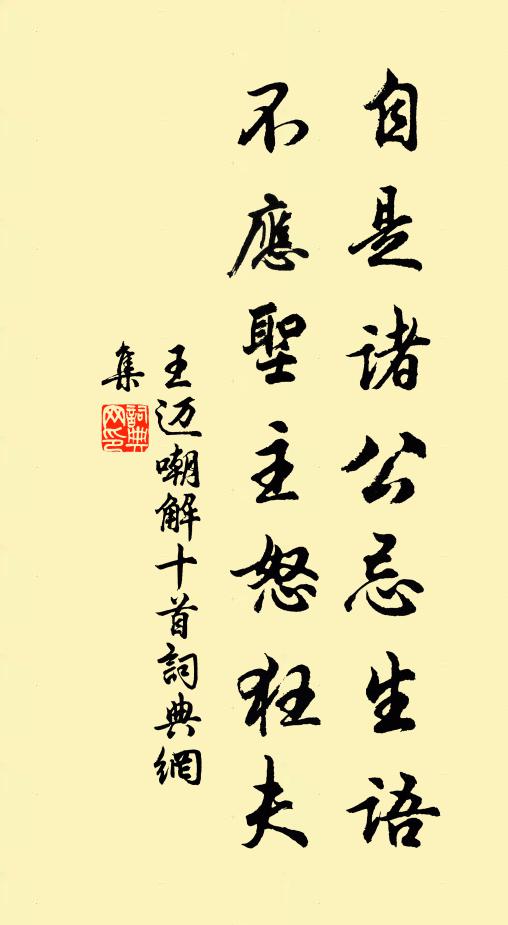 自是諸公忌生語
不應聖主怒狂夫
王迈嘲解十首詞典網
集
詞典
网印